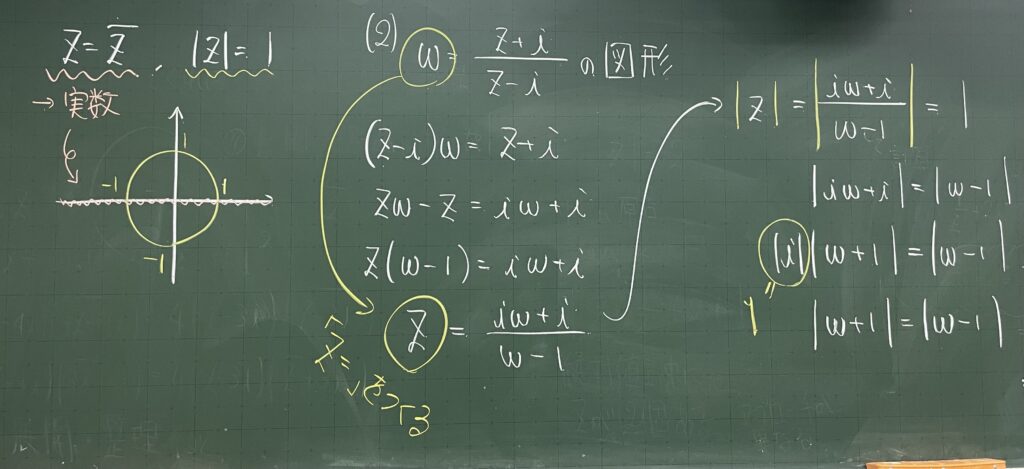 z = z̅ , |z| = 1
→ 実数
1
-1 1
-1
(2) w = (z+i)/(z-i) の 図形
(z-i)w = z+i
zw - z = iw + i
z(w-1) = iw + i
z = (iw+i)/(w-1)
|z| = |(iw+i)/(w-1)| = 1
|iw+i| = |w-1|
|i||w+1| = |w-1|
1
|w+1| = |w-1|